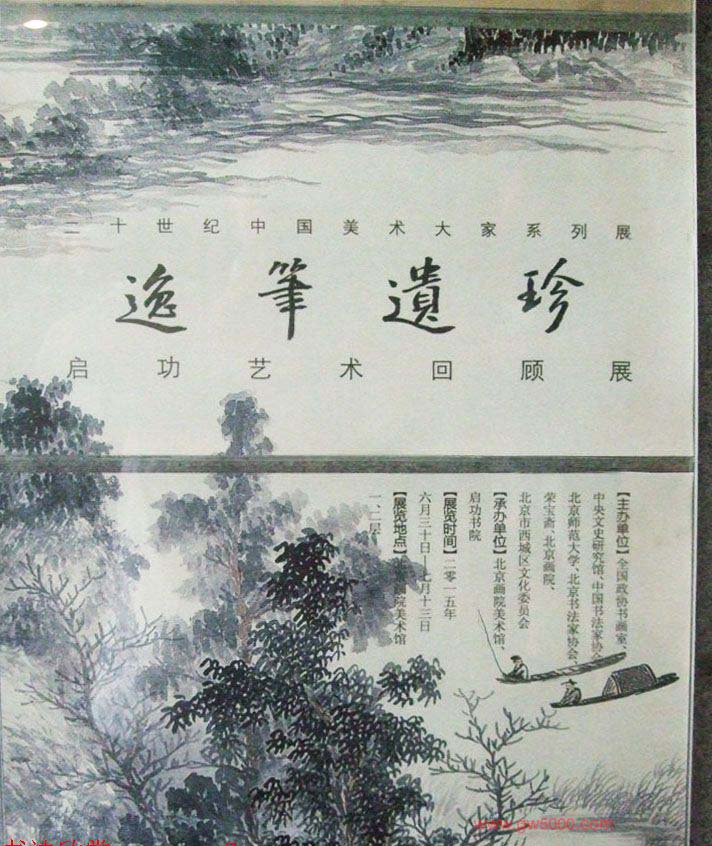 二十世纪中国美术大家系列展
逸筆遺珍
启功艺术回顾展
【主办单位】全国政协书画室、
中央文史研究馆、中国书法家协
北京师范大学、北京书法家协会、
荣宝斋、北京画院、
北京市西城区文化委员会
【承办单位】北京画院美术馆、
启功书院
【展览时间】二零一五年
六月三十日—七月十三日
【展览地点】 画院美术馆
一、二层
www.gw5000.com